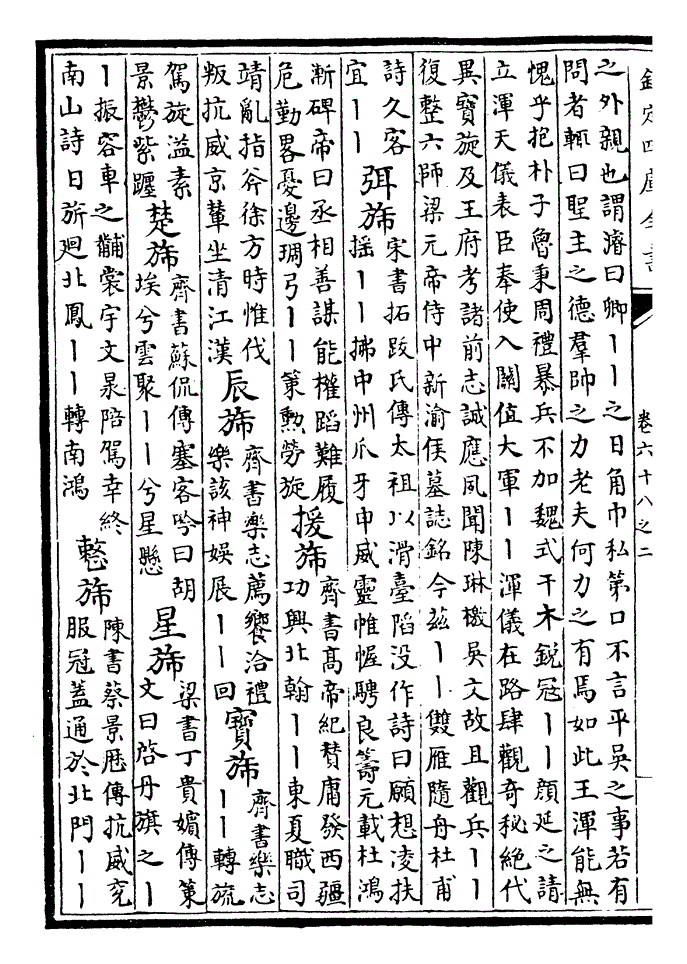 欽定四庫全書
卷六十八之二
之外親也謂濬曰卿丨丨之日角巾私第口不言平吳之事若有
問者輒曰聖主之德羣帥之力老夫何力之有焉如此王渾能無
愧乎抱朴子魯秉周禮暴兵不加魏式干木鋭冠丨丨顔延之請
立渾天儀表臣奉使入關值大軍丨丨渾儀在路肆觀奇秘絶代
異寳旋及王府考諸前志誠應夙聞陳琳檄吳文故且觀兵丨丨
復整六師梁元帝侍中新渝侯墓誌銘今兹丨丨雙雁隨舟杜甫
詩久客
宜丨丨
弭斾
宋書拓跋氏傳太祖以滑臺陷没作詩曰願想凌扶
揺丨丨拂中州爪牙申威靈帷幄騁良籌元載杜鴻
漸碑帝曰丞相善謀能權蹈難履
危勤畧憂邊琱弓丨丨策勲勞旋
援斾
齊書高帝紀賛庸發西疆
功興北翰丨丨東夏職司
靖亂指斧徐方時惟伐
叛抗威京輦坐清江漢
辰斾
齊書樂志薦饗洽禮
樂該神娱展丨丨回
寳斾
齊書樂志
丨丨轉旒
駕旋溢素
景鬱紫躔
楚斾
齊書蘇侃傳塞客吟曰胡
埃兮雲聚丨丨兮星懸
星斾
梁書丁貴嬪傳策
文曰啓丹旗之丨
丨振容車之黼裳宇文㫤陪駕幸終
南山詩日旂廻北鳳丨丨轉南鴻
整斾
陳書蔡景厯傳抗威兖
服冠蓋通於北門丨丨